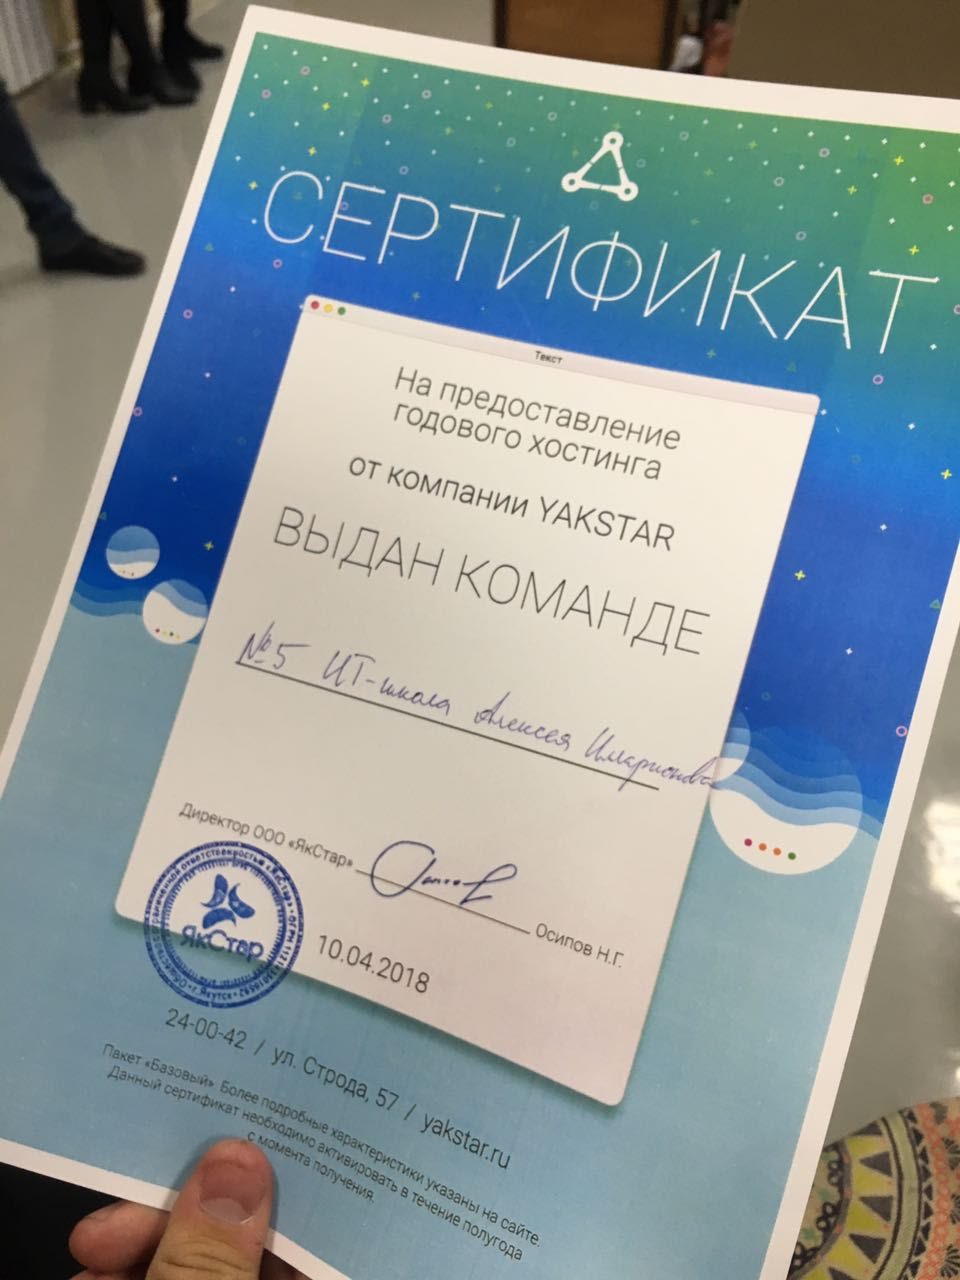 СЕРТИФИКАТ
Текст
На предоставление
годового хостинга
от компании YAKSTAR
ВЫДАН КОМАНДЕ
№5 ИТ-школа Алексея Иларионова
Директор ООО «ЯкСтар»
Осипов Н.Г.
ЯкСтар
10.04.2018
24-00-42 / ул. Строда, 57 / yakstar.ru
Пакет «Базовый» Более подробные характеристики указаны на сайте.
Данный сертификат необходимо активировать в течение полугода
с момента получения.